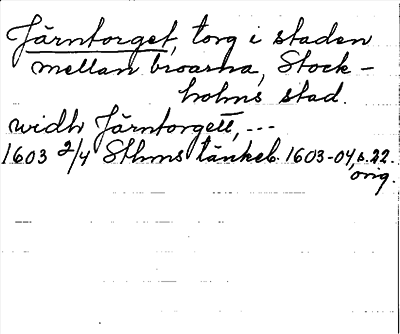 Järntorget, torg i staden
mellan broarna, Stock-
holms stad.
widh Järntorgett, ---
1603 2/4 Sthms tänkeb. 1603-04, s. 22.
orig.